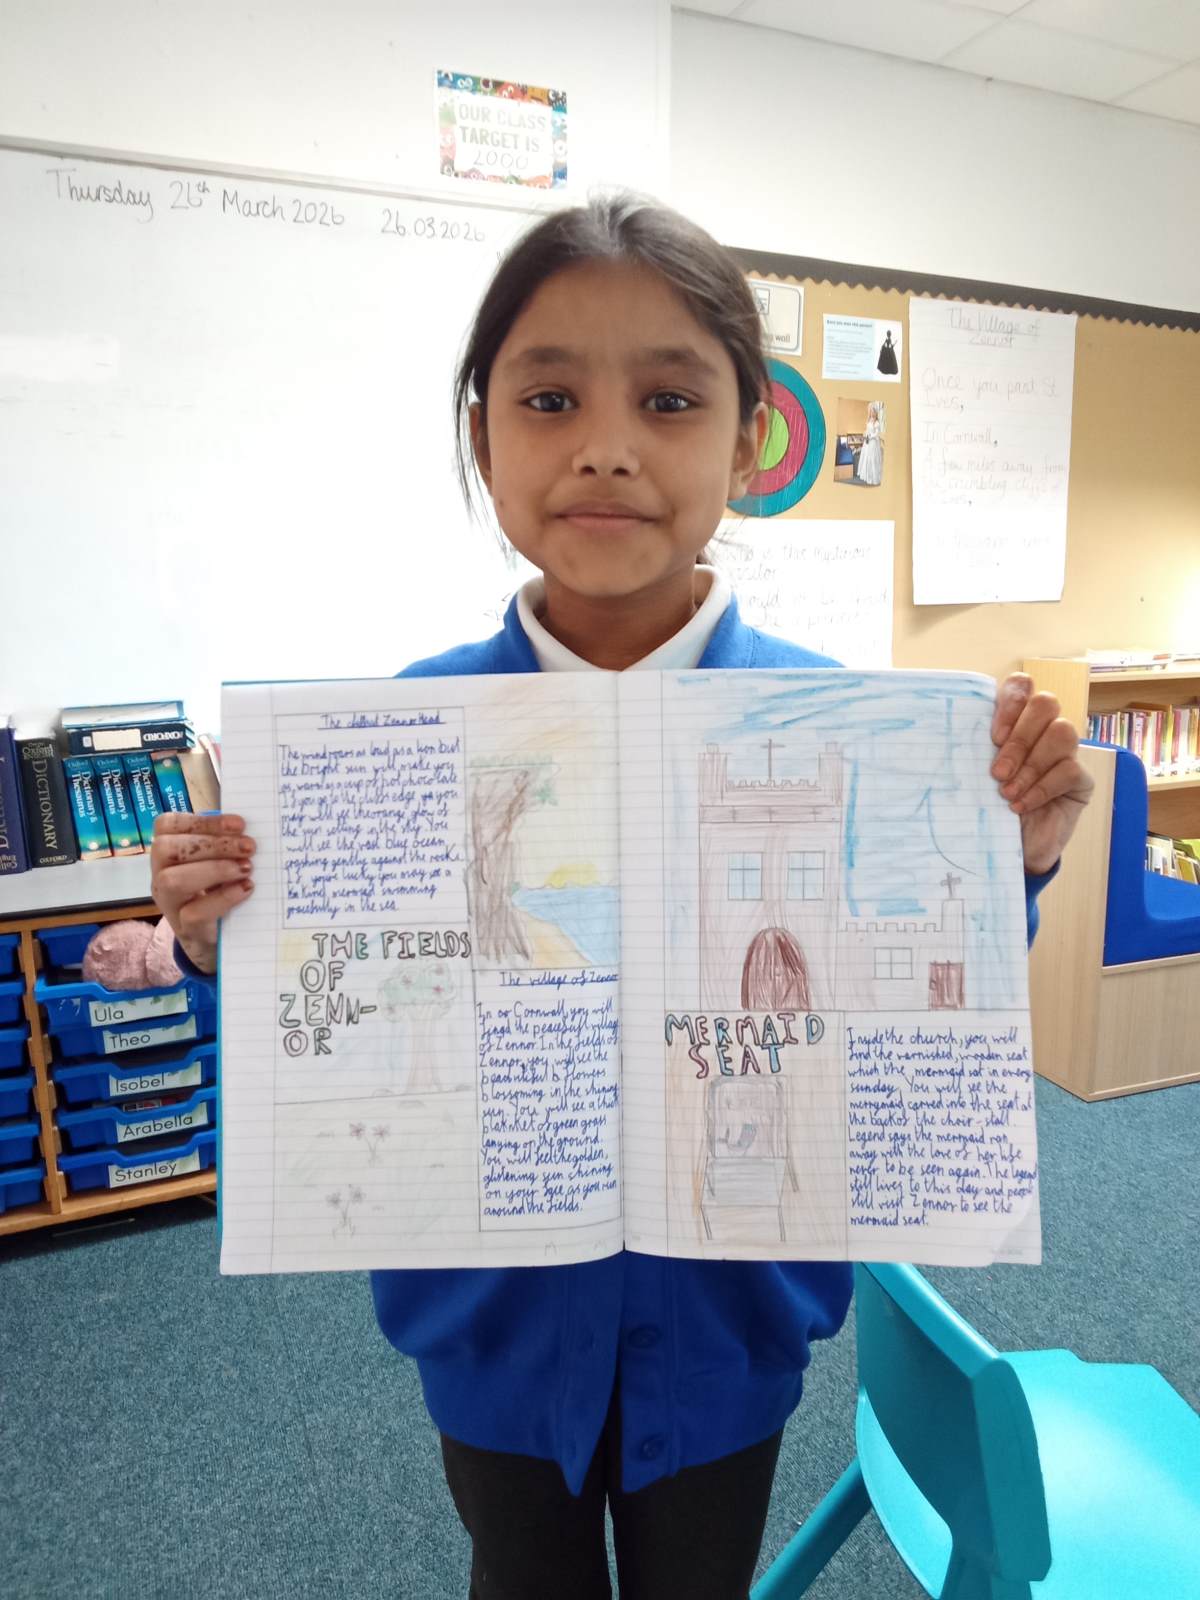 OUR CLASS
TARGET IS
2000
Thursday 26th March 2026 26.03.2026
The Village of
Zennor
Once you past St
Ives,
In Cornwall,
A few miles away from
the crumbling cliffs of
St Ives,
wall
Who is this mysterious
visitor
The clifftout Zennor Head
The wind roars as loud as a lion but
the bright sun will make you
as warm as a cup of hot chocolate.
If you go to the cliffs edge, ya you
may will see the orange glow of
the sun setting in the sky. You
will see the vast blue ocean
crashing gently against the rocks.
If you're lucky you may see a
mermaid swimming
gracefully in the sea.
THE FIELDS
OF
ZENN-
OR
The village of Zennor
In co Cornwall, you will
find the peaceful village
of Zennor. In the fields of
Zennor, you will see the
beautiful flowers
blossoming in the shining
sun. You will see a thick
blanket of green grass
on the ground.
You will feel the golden,
glistening sun shining
on your face as you run
around the fields.
MERMAID
SEAT
Inside the church, you will
find the varnished, wooden seat
which the mermaid sat in every
sunday. You will see the
merrymaid carved into the seat at
the back of the choir-stall.
Legend says the mermaid ran
away with the love of her life
never to be seen again. The legend
still lives to this day and people
still visit Zennor to see the
mermaid seat.
DICTIONARY
OXFORD
Dictionary
& Thesaurus
Dictionary
& Thesaurus
Dictionary
& Thesaurus
Ula
Theo
Isobel
Arabella
Stanley